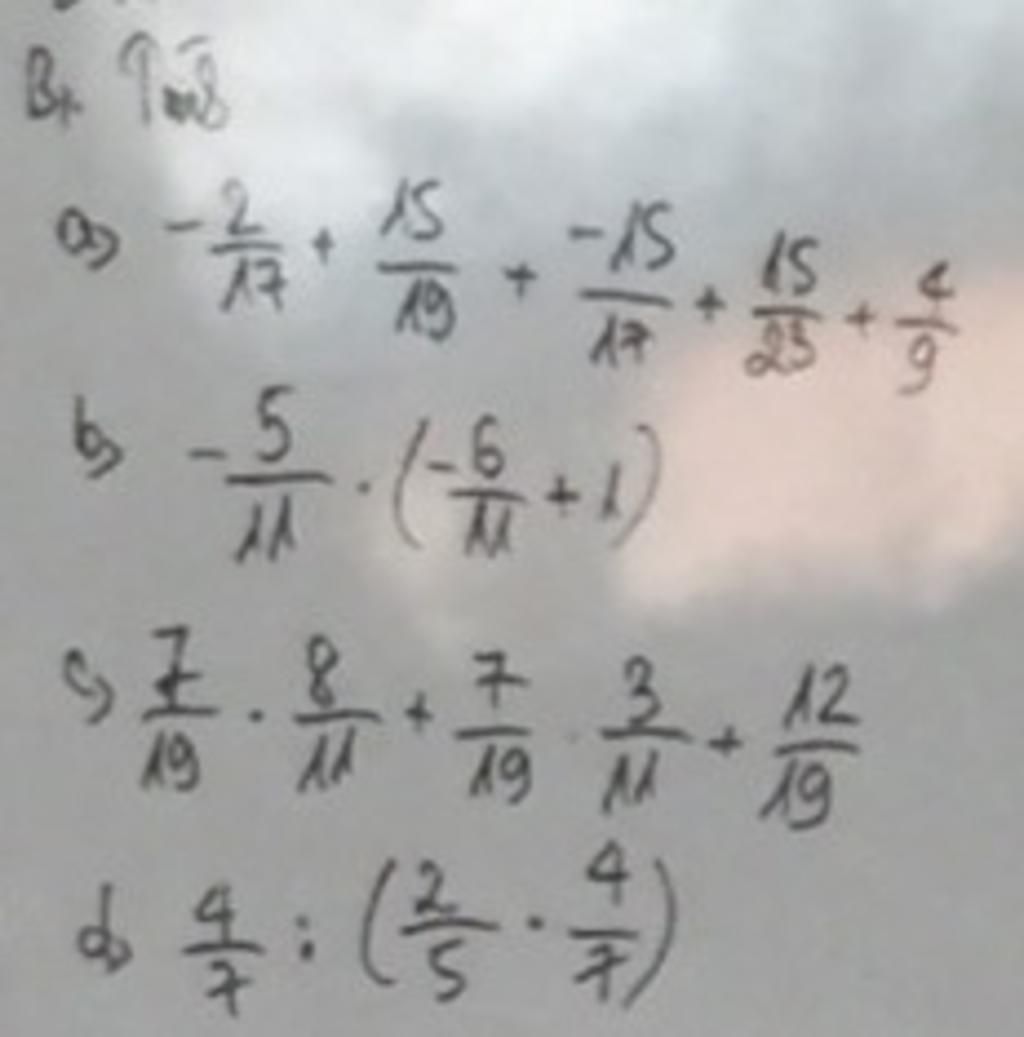 a) -2/17 + 15/19 + -15/17 + 15/23 + 4/9
b) -5/11 . (-6/11 + 1)
c) 7/19 . 8/11 + 7/19 . 3/11 + 12/19
d) 4/7 : (2/5 . 4/7)